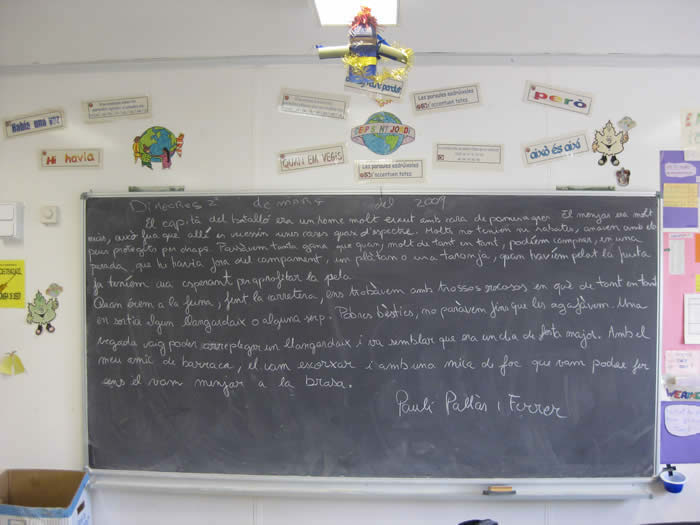 però
Les paraules esdrúixoles
s'accentuen totes.
Havia una vegada
Hi havia
PEPE SANT JORDI
QUAN EM VEGIS
Les paraules esdrúixoles
s'accentuen totes.
això és així
Dimecres 2 de març del 2009
El capità del batalló era un home molt eixut amb cara de pomes agres. El menjar era molt
escàs, això feia que allí es veiessin unes cares quasi d'espectre. Molts no tenien ni sabates, anaven amb els
peus protegits per draps. Passàvem tanta gana que quan, molt de tant en tant, podíem comprar, en una
parada que hi havia fora del campament, un plàtan o una taronja, quan havíem pelat la fruita
ja teníem cua esperant per aprofitar la pela.
Quan érem a la feina, fent la carretera, ens trobàvem amb trossos rocosos en què de tant en tant
en sortia algun llangardaix o alguna serp. Pobres bèsties, no paràvem fins que les agafàvem. Una
vegada vaig poder arreplegar un llangardaix i va semblar que era un dia de festa major. Amb el
meu amic de barraca, el vam escorxar i amb una mica de foc que vam poder fer
ens el vam menjar a la brasa.
Paulí Pallàs i Ferrer